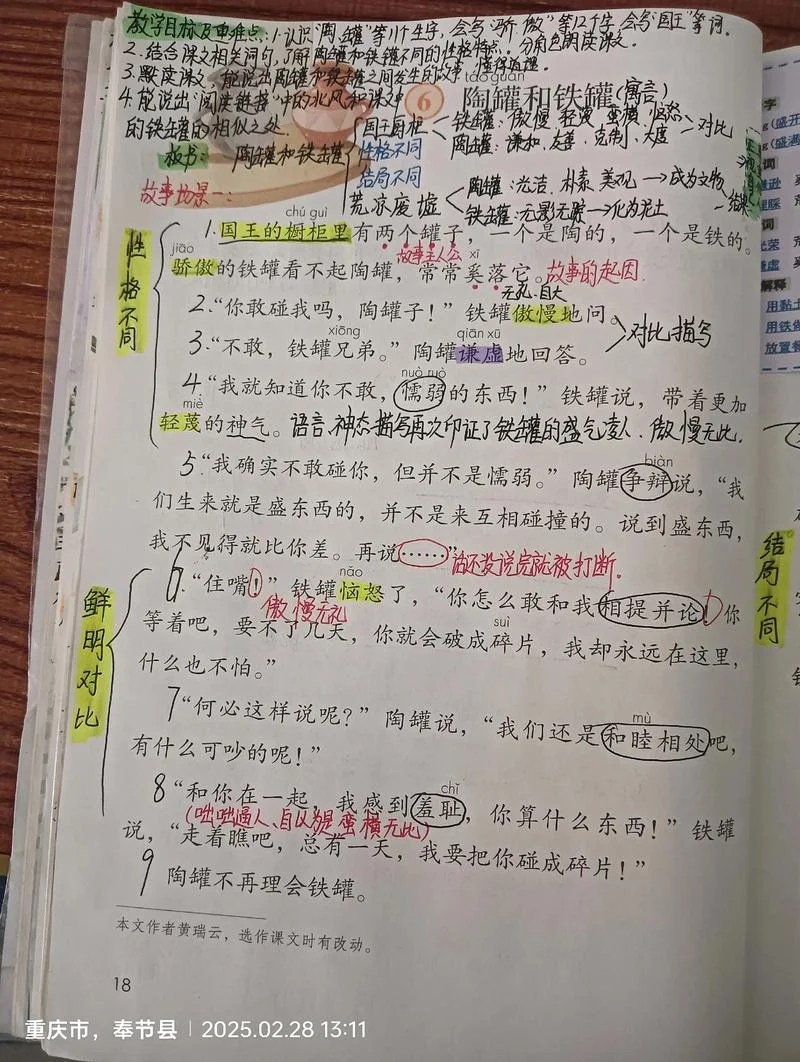 教学目标及重难点：1.认识"陶、罐"等11个生字，会写"骄、傲"等12个字，会写"国王"等词。
2.结合课文相关词句，了解陶罐和铁罐不同的性格特点。分角色朗读课文。
3.默读课文，能说出陶罐和铁罐之间发生的故事，懂得道理。
4.能说出"阅读链接"中的北风和课文中
的铁罐的相似之处。
táo guàn
6 陶罐和铁罐(寓言)
板书：陶罐和铁罐
国王厨柜
铁罐：傲慢 轻蔑 蛮横 恼怒
陶罐：谦和、友善、克制、大度
对比
性格不同
结局不同
荒凉废墟
陶罐：光洁、朴素、美观→成为文物
铁罐：无影无踪→化为泥土
故事场景一：
chú guì
1.国王的橱柜里有两个罐子，一个是陶的，一个是铁的。
故事主人公
jiāo xī
骄傲的铁罐看不起陶罐，常常奚落它。故事的起因
无礼、自大
2."你敢碰我吗，陶罐子！"铁罐傲慢地问。
xiōng qiān xū
3."不敢，铁罐兄弟。"陶罐谦虚地回答。
对比描写
nuò ruò
4."我就知道你不敢，懦弱的东西！"铁罐说，带着更加
miè
轻蔑的神气。语言、神态描写再次印证了铁罐的盛气凌人、傲慢无比。
biàn
5."我确实不敢碰你，但并不是懦弱。"陶罐争辩说，"我
们生来就是盛东西的，并不是来互相碰撞的。说到盛东西，
我不见得就比你差。再说……"
话还没说完就被打断。
nǎo
"住嘴！"铁罐恼怒了，"你怎么敢和我相提并论！你
傲慢无礼
suì
等着吧，要不了几天，你就会破成碎片，我却永远在这里，
什么也不怕。"
mù
7"何必这样说呢？"陶罐说，"我们还是和睦相处吧，
有什么可吵的呢！"
chǐ
8"和你在一起，我感到羞耻，你算什么东西！"铁罐
(咄咄逼人、自以为是、蛮横无比)
说，"走着瞧吧，总有一天，我要把你碰成碎片！"
9 陶罐不再理会铁罐。
性格不同
鲜明对比
结局不同
本文作者黄瑞云，选作课文时有改动。
18
重庆市，奉节县 | 2025.02.28 13:11
字
(盛开
(盛满
词
词
光荣
解释
用黏土
用铁做
放置餐